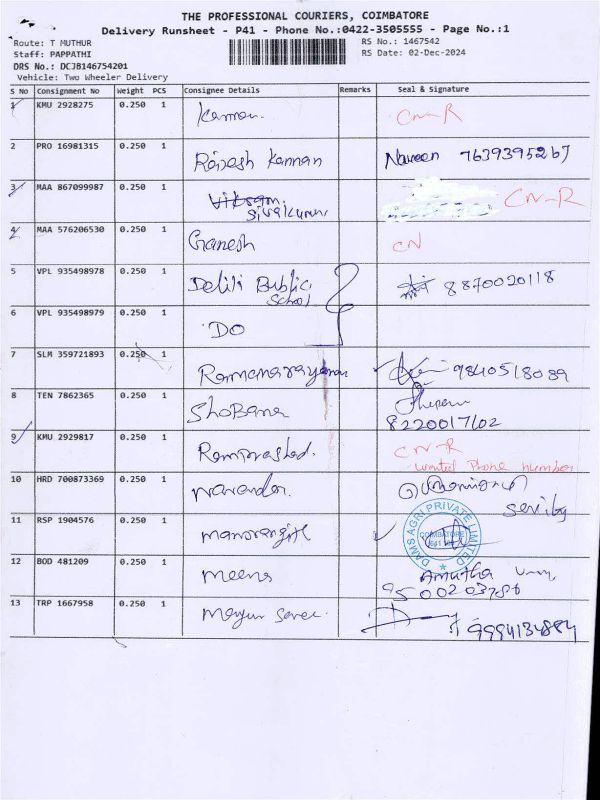 THE PROFESSIONAL COURIERS, COIMBATORE
Delivery Runsheet - P41 - Phone No.:0422-3505555 - Page No.:1
Route: T MUTHUR
RS No.: 1467542
Staff: PAPPATHI
RS Date: 02-Dec-2024
DRS No.: DCJB146754201
Vehicle: Two Wheeler Delivery
S No Consignment No Weight PCS Consignee Details Remarks Seal & Signature
1 KMU 2928275 0.250 1 Kannan. CN-R
2 PRO 16981315 0.250 1 Rajesh Kannan Naveen 7639395267
3 MAA 867099987 0.250 1 Sivakumar CN-R
4 MAA 576206530 0.250 1 Ganesh CN
5 VPL 935498978 0.250 1 Delhi Public School 8870020118
6 VPL 935498979 0.250 1 DO
7 SLM 359721893 0.250 1 Ramanarayanan 9840518089
8 TEN 7862365 1 0.250 Shobana
8220017102
9 KMU 2929817 0.250 1 Ramprashad. CN-R
wanted Phone number
10 HRD 700873369 0.250 1 Narender.
11 RSP 1904576 0.250 1 Manoranjith DAMS AGRI PRIVATE LIMITED COIMBATORE
12 BOD 481209 0.250 1 Meena Amutha
9500203786
13 TRP 1667958 0.250 1 Mayur 9994134884